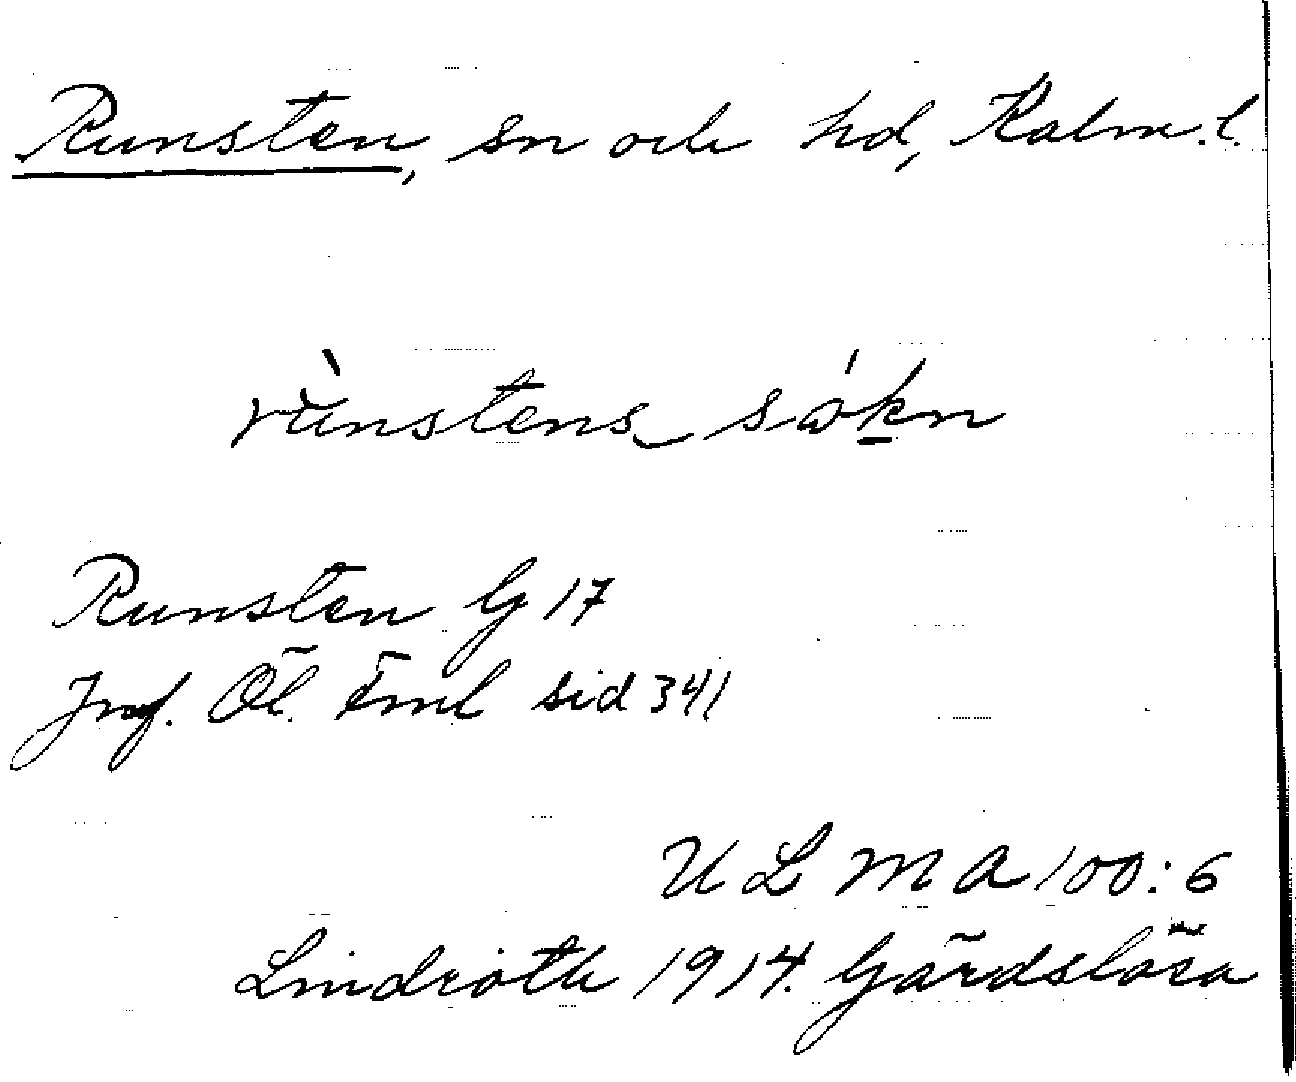 Runsten, sn och hd, Kalm. l.
rùnstens sökn
Runsten G 17
Jmf. Öl. Fml sid 341
ULMA 100:6
Lindroth 1914. Gärdslösa